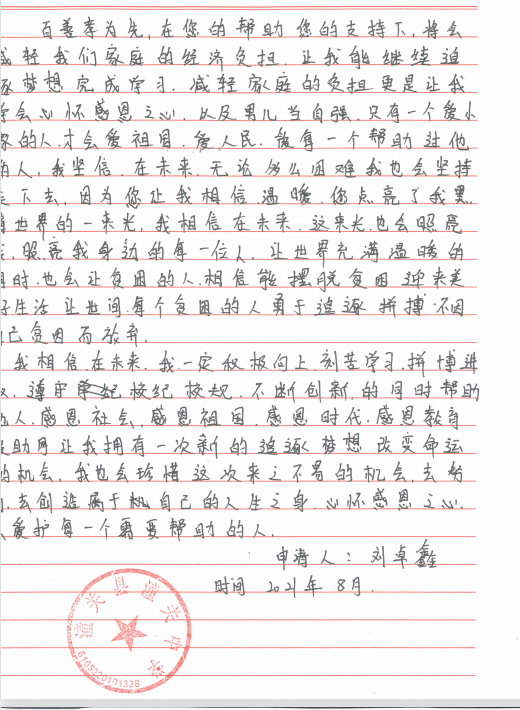 百善孝为先，在您的帮助 您的支持下，将会
减轻我们家庭的经济负担。让我能继续追
逐梦想完成学习。减轻家庭的负担更是让我
学会心怀感恩之心，以及男儿当自强。只有一个爱小
家的人，才会爱祖国，爱人民，爱每一个帮助过他
的人，我坚信，在未来，无论多么困难我也会坚持
走下去，因为您让我相信温暖，您点亮了我黑
暗世界的一束光，我相信在未来，这束光也会照亮
我，照亮我身边的每一位人，让世界充满温暖的
同时，也会让贫困的人，相信能摆脱贫困 迎来美
好生活 让世间每个贫困的人勇于追逐 拼搏 不因
自己贫困而放弃。
我相信在未来，我一定积极向上，刻苦学习，拼博进
取，遵守 校纪 校规，不断创新，的同时帮助
他人，感恩社会，感恩祖国，感恩时代，感恩教育
助网让我拥有一次新的追逐梦想，改变命运
的机会，我也会珍惜这次来之不易的机会，去
去创造属于 自己的人生之身，心怀感恩之心，
爱护每一个需要帮助的人。
申请人：刘卓鑫
时间 2021年 8月.
潼关县潼关中学